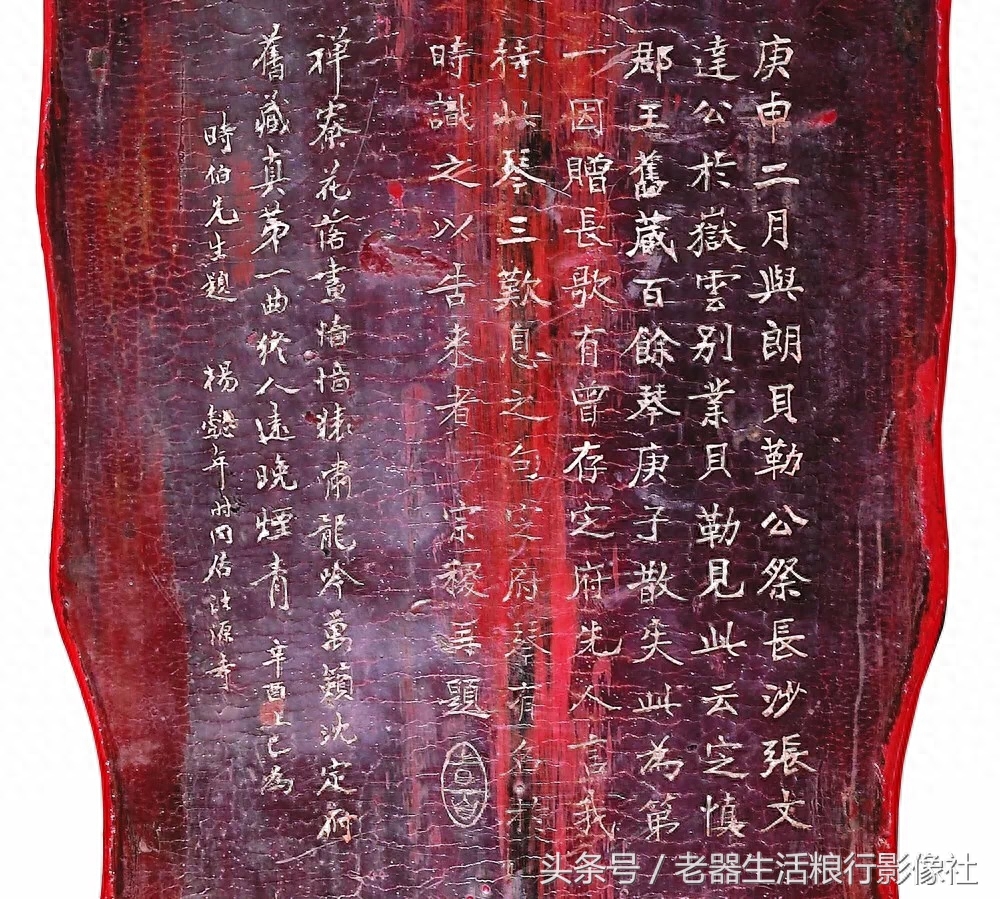 庚申二月與朗貝勒公祭長沙張文
達公於嶽雲别業貝勒見此云定慎
郡王舊藏百餘琴庚子散失此為第
一因贈長歌有曾存定府先人言我
持此琴三歎息之句定府琴有名於
時識之以告来者 宗稷再題
禅寮花落晝愔愔猿嘯龍吟萬籟沈定府
舊藏真第一曲终人遠晚煙青 辛酉上巳為
時伯先生題 楊懿年時同居法源寺
头条号 / 老器生活粮行影像社